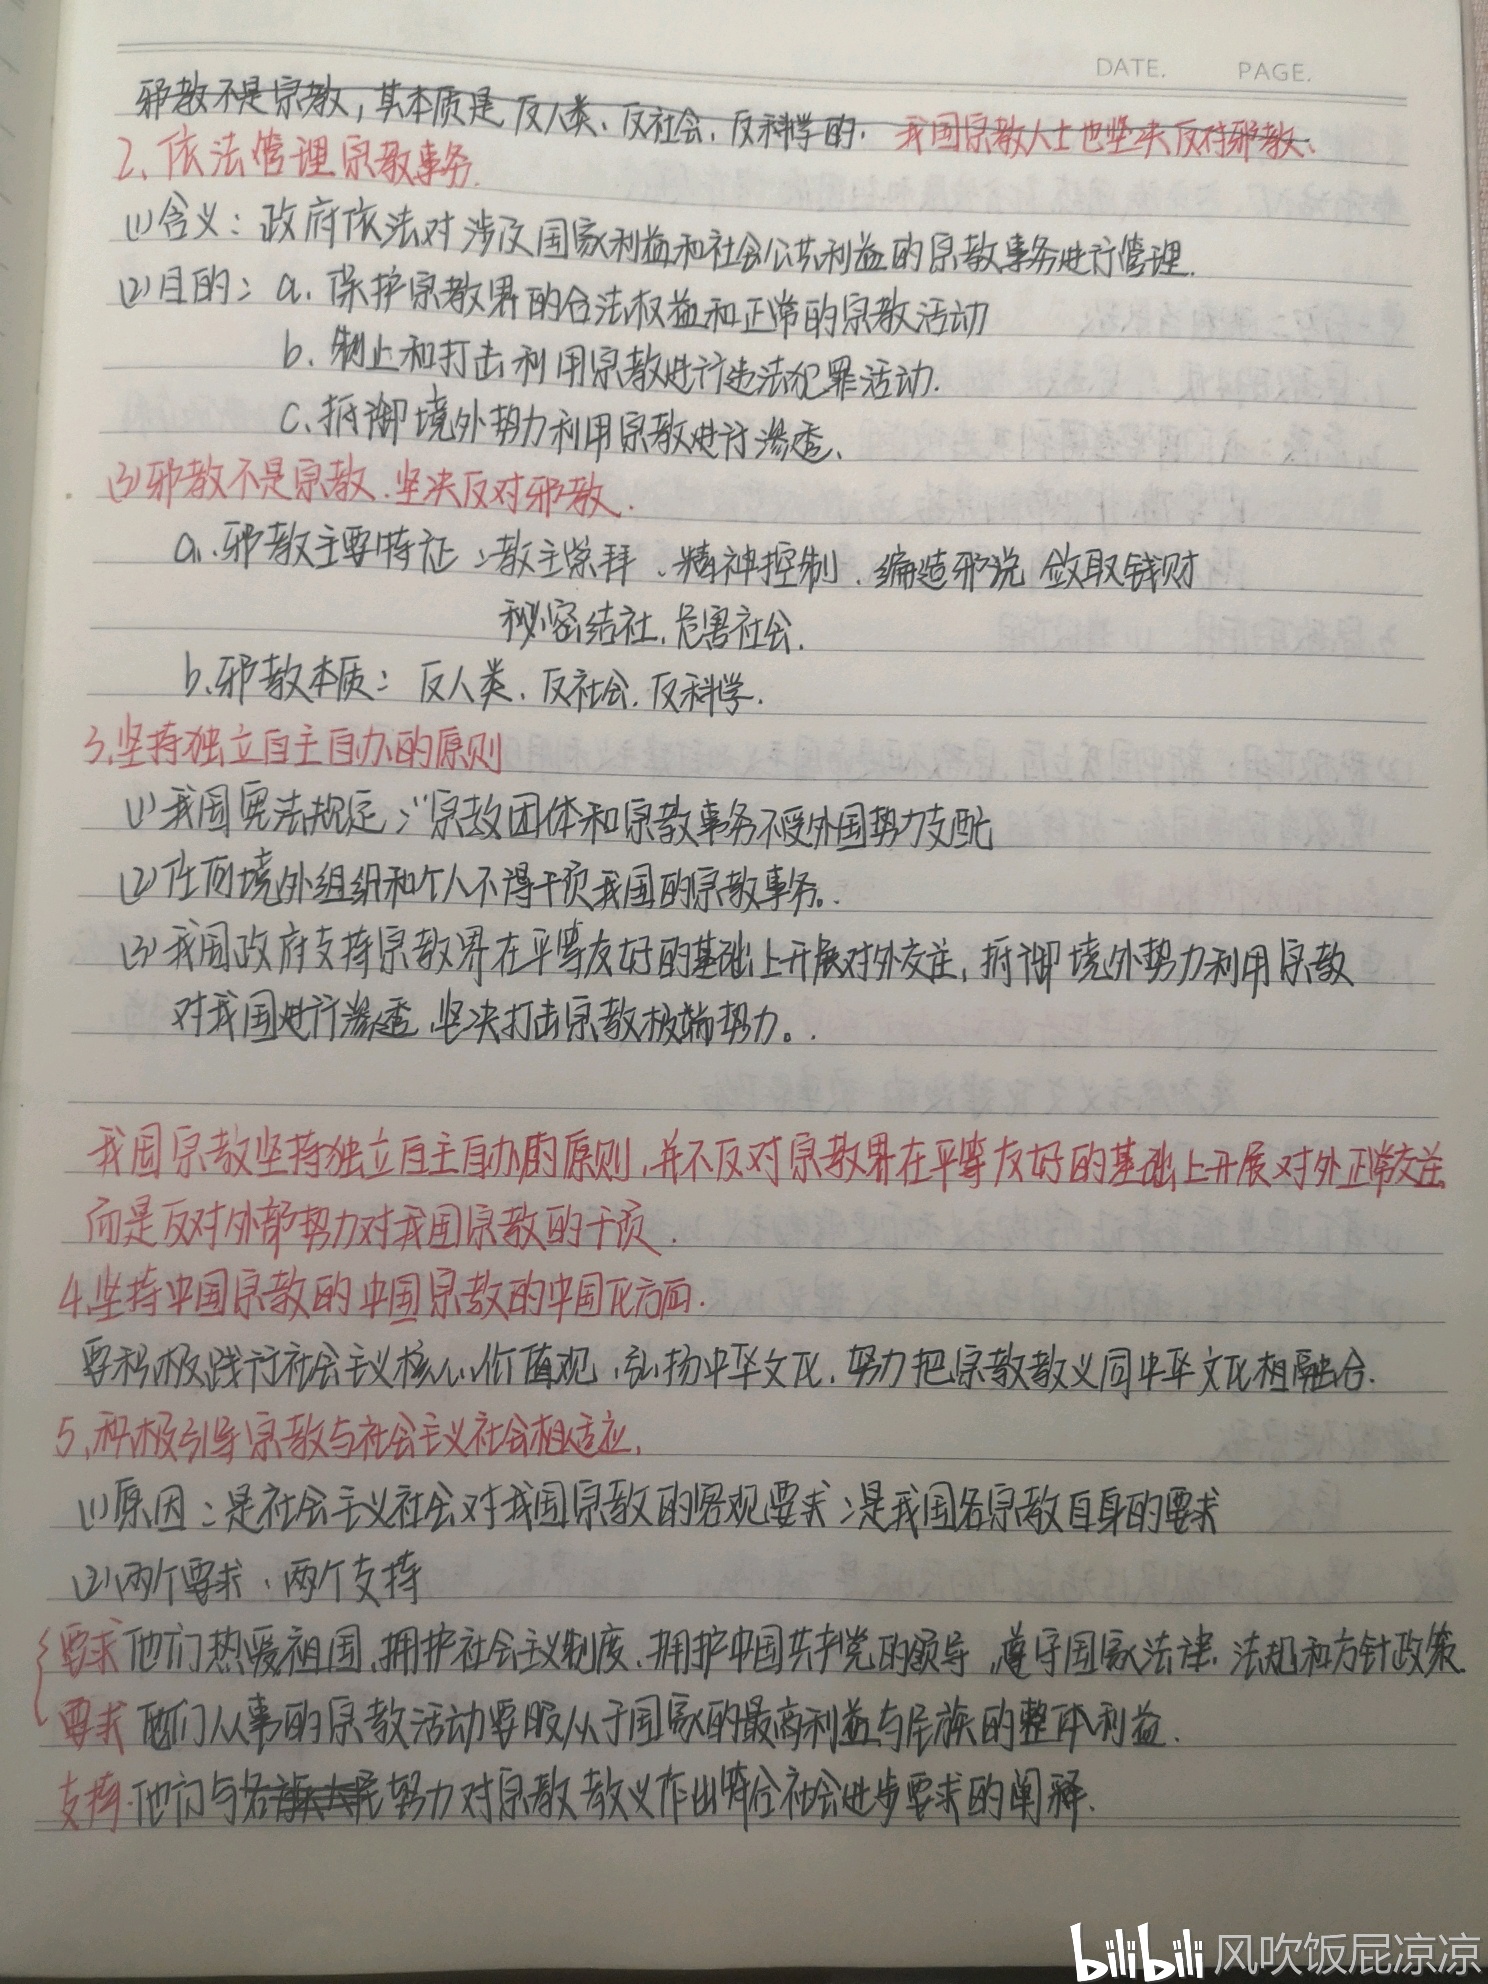 DATE. PAGE.
邪教不是宗教，其本质是反人类、反社会、反科学的. 我国宗教人士也坚决反对邪教、
2、依法管理宗教事务.
(1)含义：政府依法对涉及国家利益和社会公共利益的宗教事务进行管理.
(2)目的：a. 保护宗教界的合法权益和正常的宗教活动
b. 制止和打击利用宗教进行违法犯罪活动.
C、抵御境外势力利用宗教进行渗透、
(3)邪教不是宗教、坚决反对邪教.
a.邪教主要特征：教主崇拜、精神控制、编造邪说 敛取钱财
秘密结社, 危害社会.
b.邪教本质：反人类、反社会, 反科学.
3.坚持独立自主自办的原则
(1)我国宪法规定："宗教团体和宗教事务不受外国势力支配
(2)任何境外组织和个人不得干预我国的宗教事务。.
(3)我国政府支持宗教界在平等友好的基础上开展对外交往, 抵御境外势力利用宗教
对我国进行渗透、坚决打击宗教极端势力。.
我国宗教坚持独立自主自办的原则, 并不反对宗教界在平等友好的基础上开展对外正常交往
而是反对外部势力对我国宗教的干预.
4.坚持中国宗教的中国宗教的中国化方面.
要积极践行社会主义核心价值观, 弘扬中华文化, 努力把宗教教义同中华文化相融合.
5、积极引导宗教与社会主义社会相适应,
(1)原因：是社会主义社会对我国宗教的客观要求：是我国各宗教自身的要求
(2)两个要求、两个支持
要求他们热爱祖国,拥护社会主义制度、拥护中国共产党的领导, 遵守国家法律. 法规和方针政策.
要求 他们从事的宗教活动要服从于国家的最高利益与民族的整体利益.
支持·他们与各族人民努力对宗教教义作出符合社会进步要求的阐释.
bilibili 风吹饭屁凉凉